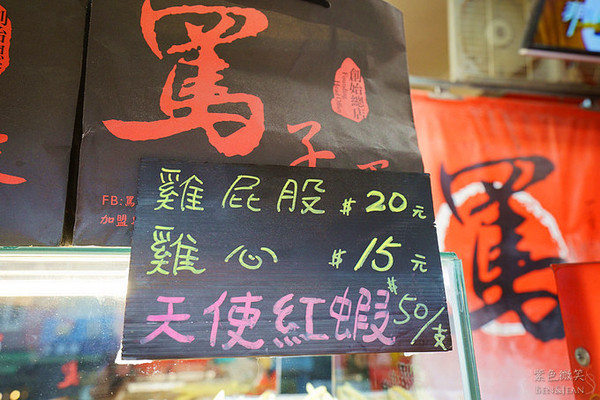 創始總店
罵
創始總店
子
FB:罵
加盟
雞屁股 $20元
雞心 $15元
天使紅蝦 $50/支
罵
紫色微笑
BEN&JEAN